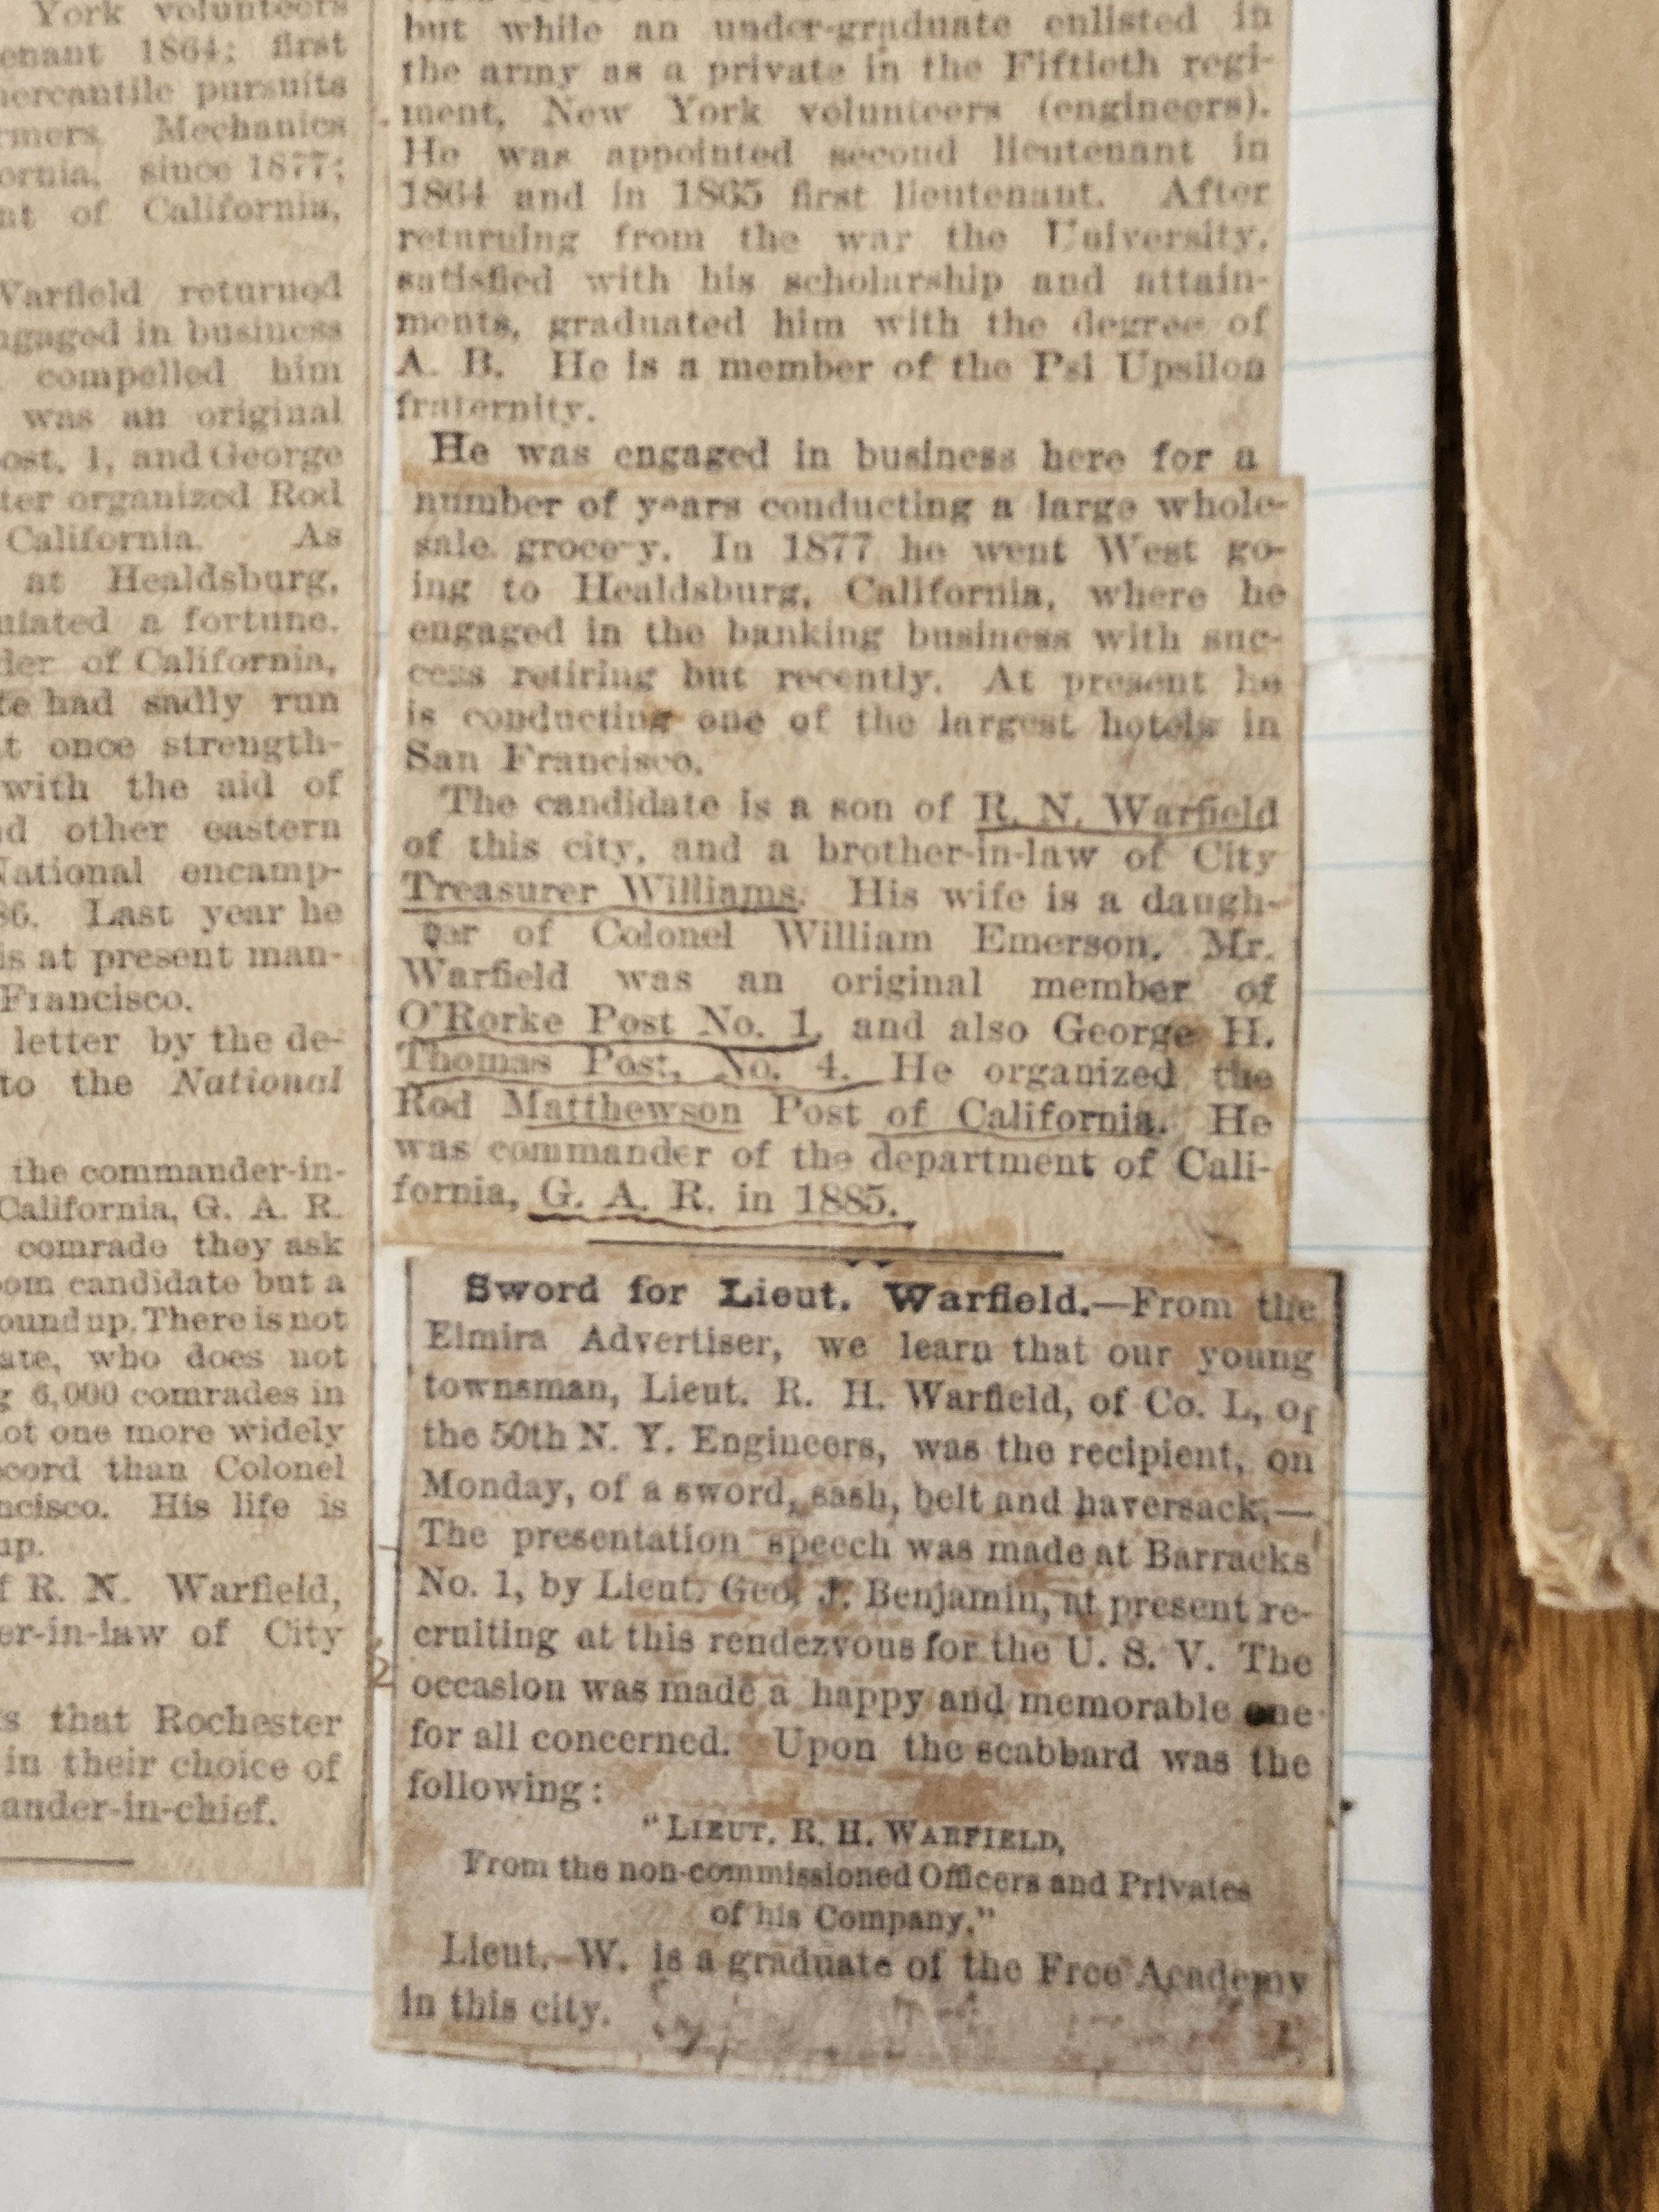 York volunteers
enant 1864; first
ercantile pursuits
rmers, Mechanics
ornia, since 1877;
nt of California,
Warfield returned
ngaged in business
compelled him
was an original
ost, 1, and George
ter organized Rod
California. As
at Healdsburg,
ulated a fortune.
der of California,
fe had sadly run
at once strength-
with the aid of
nd other eastern
National encamp-
86. Last year he
is at present man-
Francisco.
letter by the de-
to the National
the commander-in-
California, G. A. R.
comrade they ask
oom candidate but a
ound up. There is not
ate, who does not
g 6,000 comrades in
ot one more widely
ecord than Colonel
ncisco. His life is
up.
f R. N. Warfield,
er-in-law of City
ts that Rochester
in their choice of
ander-in-chief.
but while an under-graduate enlisted in
the army as a private in the Fiftieth regi-
ment, New York volunteers (engineers).
He was appointed second lieutenant in
1864 and in 1865 first lieutenant. After
returning from the war the University,
satisfied with his scholarship and attain-
ments, graduated him with the degree of
A. B. He is a member of the Psi Upsilon
fraternity.
He was engaged in business here for a
number of years conducting a large whole-
sale groce-y. In 1877 he went West go-
ing to Healdsburg, California, where he
engaged in the banking business with suc-
cess retiring but recently. At present he
is conducting one of the largest hotels in
San Francisco.
The candidate is a son of R. N. Warfield
of this city, and a brother-in-law of City
Treasurer Williams. His wife is a daugh-
ter of Colonel William Emerson. Mr.
Warfield was an original member of
O'Rorke Post No. 1, and also George H.
Thomas Post, No. 4. He organized the
Rod Matthewson Post of California. He
was commander of the department of Cali-
fornia, G. A. R. in 1885.
Sword for Lieut. Warfield.—From the
Elmira Advertiser, we learn that our young
townsman, Lieut. R. H. Warfield, of Co. L, of
the 50th N. Y. Engineers, was the recipient, on
Monday, of a sword, sash, belt and haversack.—
The presentation speech was made at Barracks
No. 1, by Lieut. Geo. J. Benjamin, at present re-
cruiting at this rendezvous for the U. S. V. The
occasion was made a happy and memorable one
for all concerned. Upon the scabbard was the
following:
"LIEUT. R. H. WARFIELD,
From the non-commissioned Officers and Privates
of his Company."
Lieut. W. is a graduate of the Free Academy
in this city.